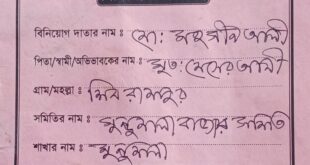 বিনিয়োগ দাতার নাম : মো: মহসীন আলী
পিতা/স্বামী/অভিভাবকের নাম : মৃত: মেসের আলী
গ্রাম/মহল্লা : শিবরামপুর
সমিতির নাম : মুন্ডুমালা বাজার সমিতি
শাখার নাম : মুন্ডুমালা